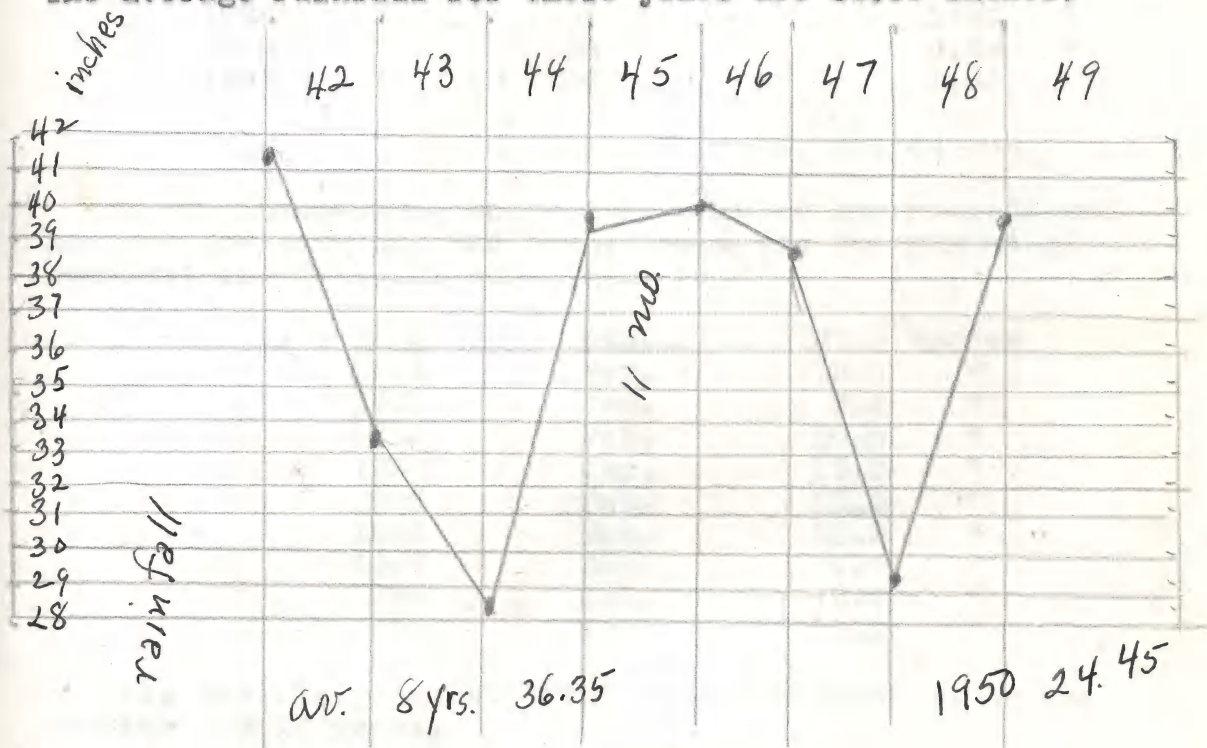 inches
42 43 44 45 46 47 48 49
42
41
40
39
38
37
36
35
34
33
32
31
30
29
28
11 mo.
rainfall
av. 8 yrs. 36.35
1950 24.45